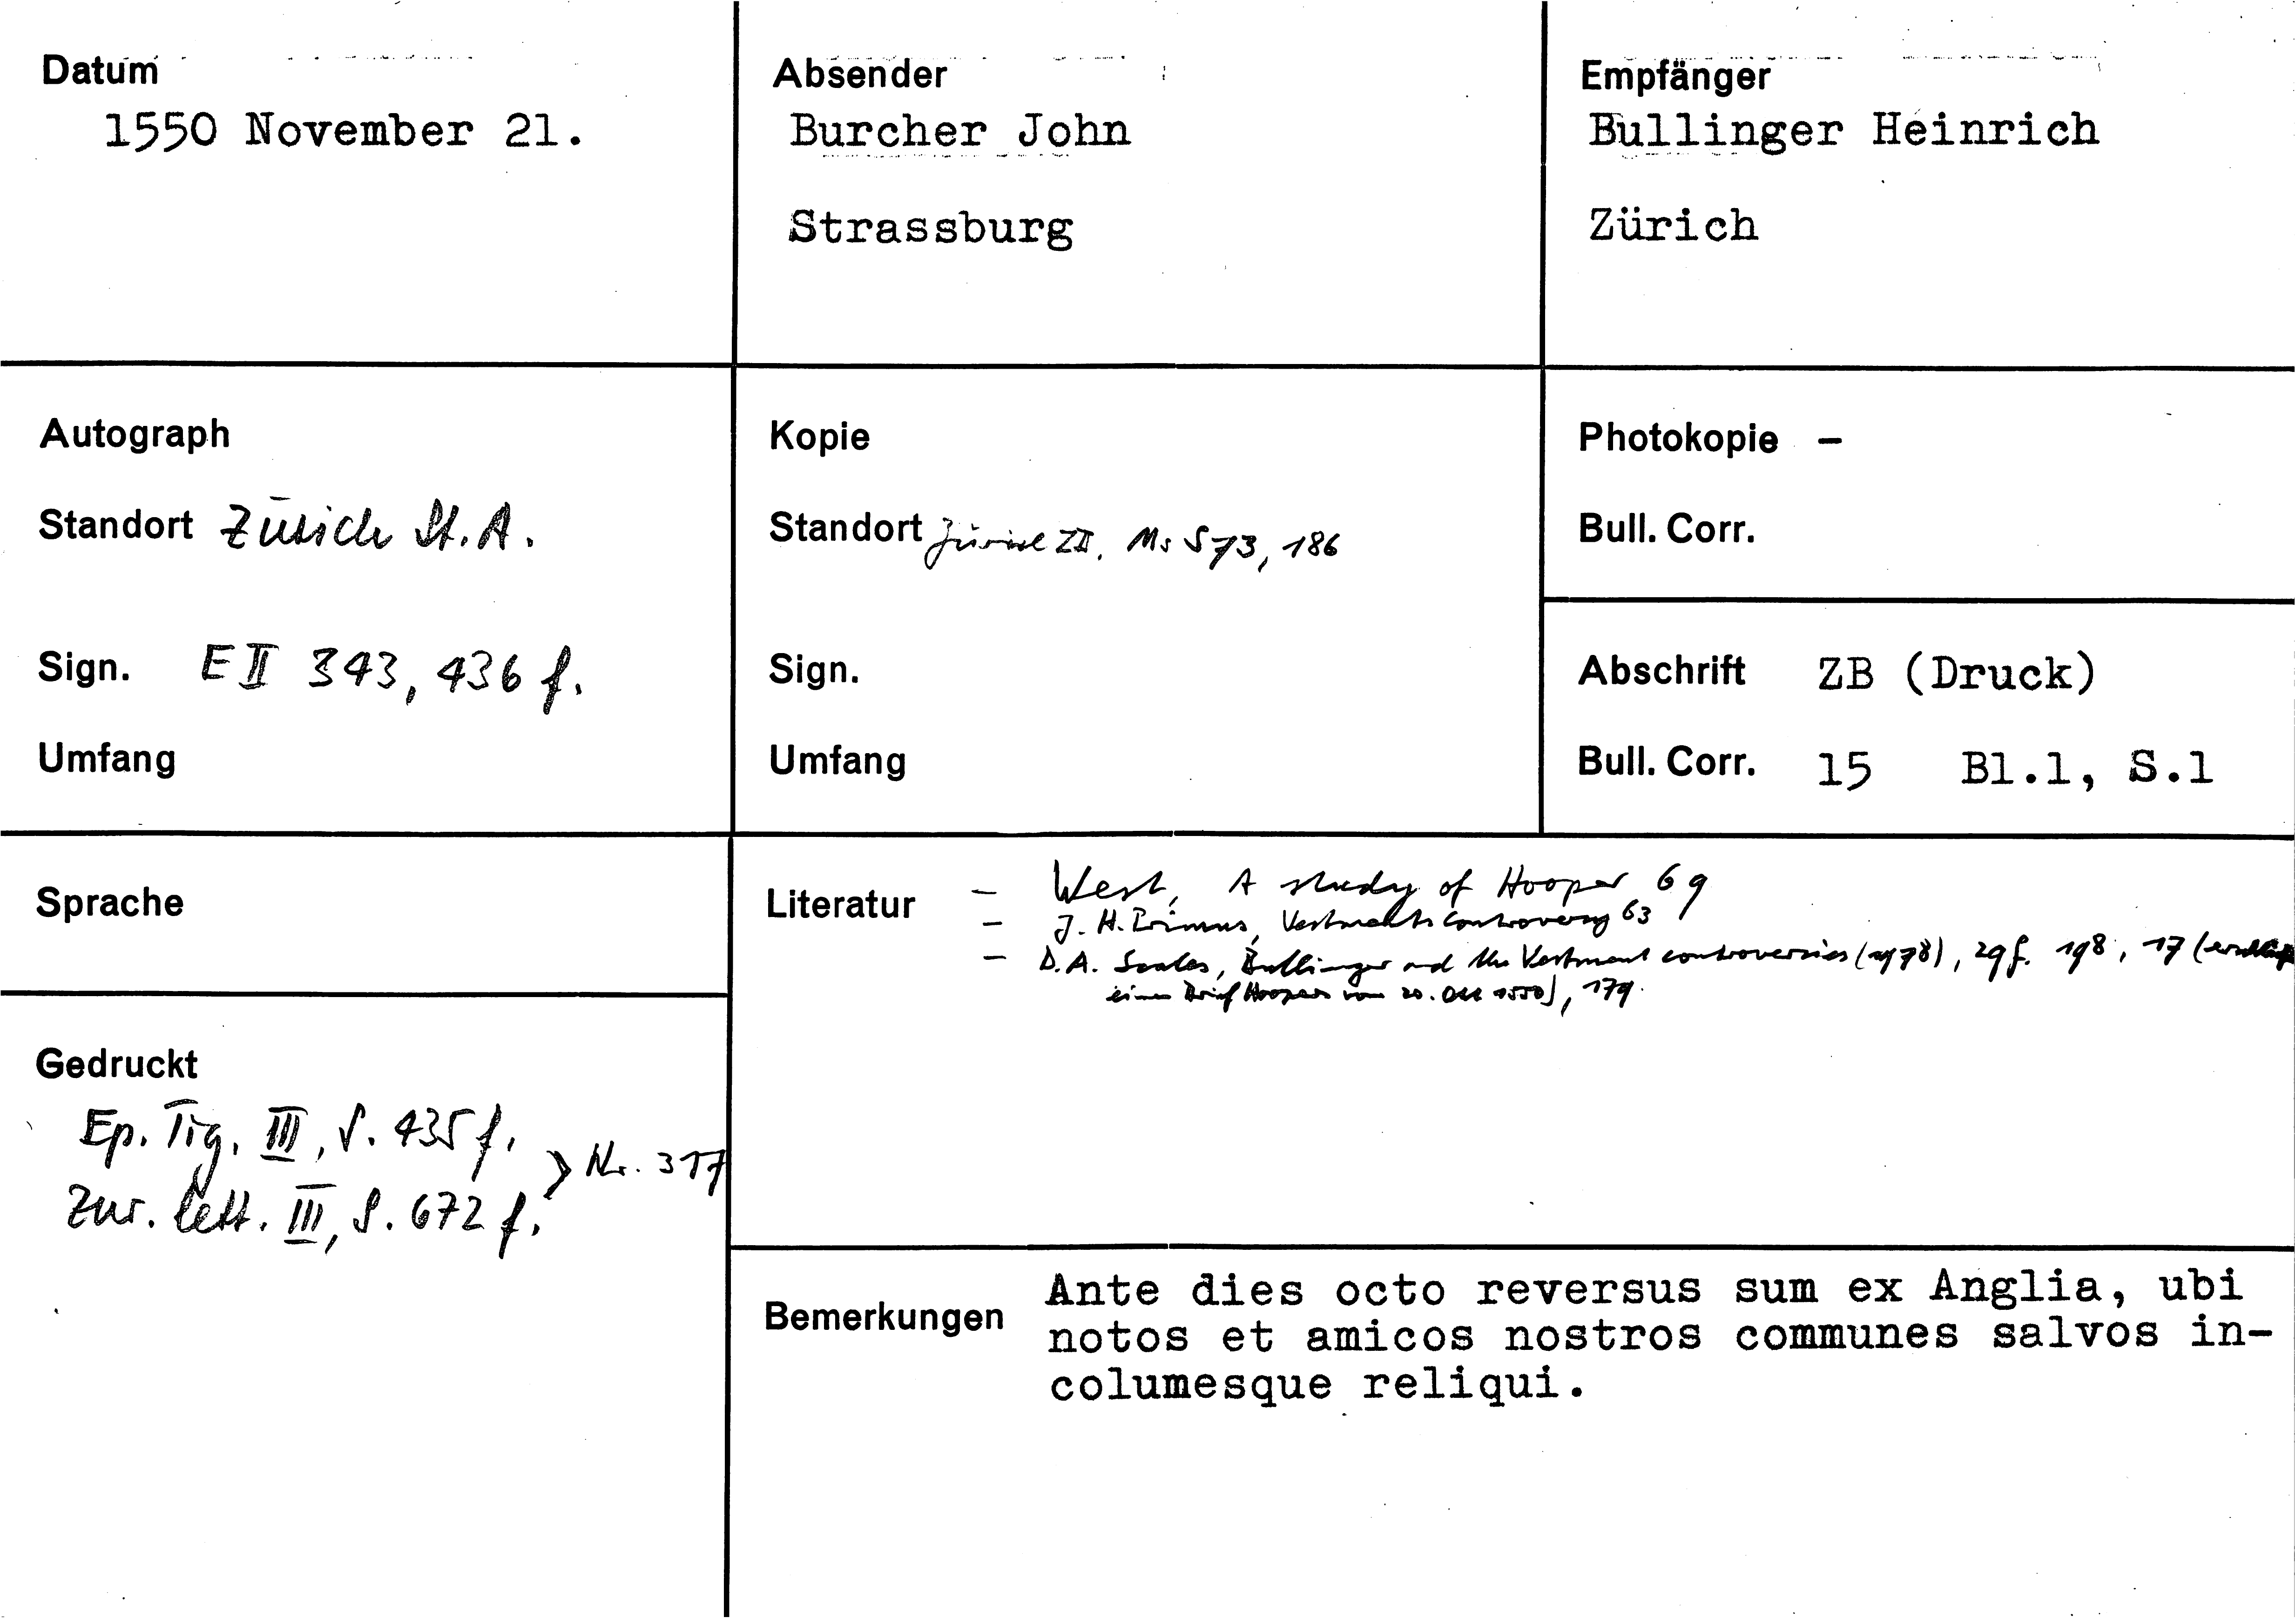 Datum
1550 November 21.
Absender
Burcher John
Strassburg
Empfänger
Bullinger Heinrich
Zürich
Autograph
Standort Zürich St.A.
Sign. E II 343, 436 f.
Umfang
Kopie
Standort Zürich ZB, Ms S 73, 186
Sign.
Umfang
Photokopie –
Bull. Corr.
Abschrift ZB (Druck)
Bull. Corr. 15 Bl.1, S.1
Sprache
Gedruckt
Ep. Tig. III, S. 435 f.
Zur. lett. III, S. 672 f. > Nr. 317
Literatur – West, A study of Hooper 69
– J. H. Primus, Vestments Controversy 63
– D.A. Scales, Bullinger and the Vestment controversies (1978), 29 f. 198, 17
einen Brief Hoopers vom 20. Okt 1550), 179.
Bemerkungen
Ante dies octo reversus sum ex Anglia, ubi
notos et amicos nostros communes salvos in-
columesque reliqui.